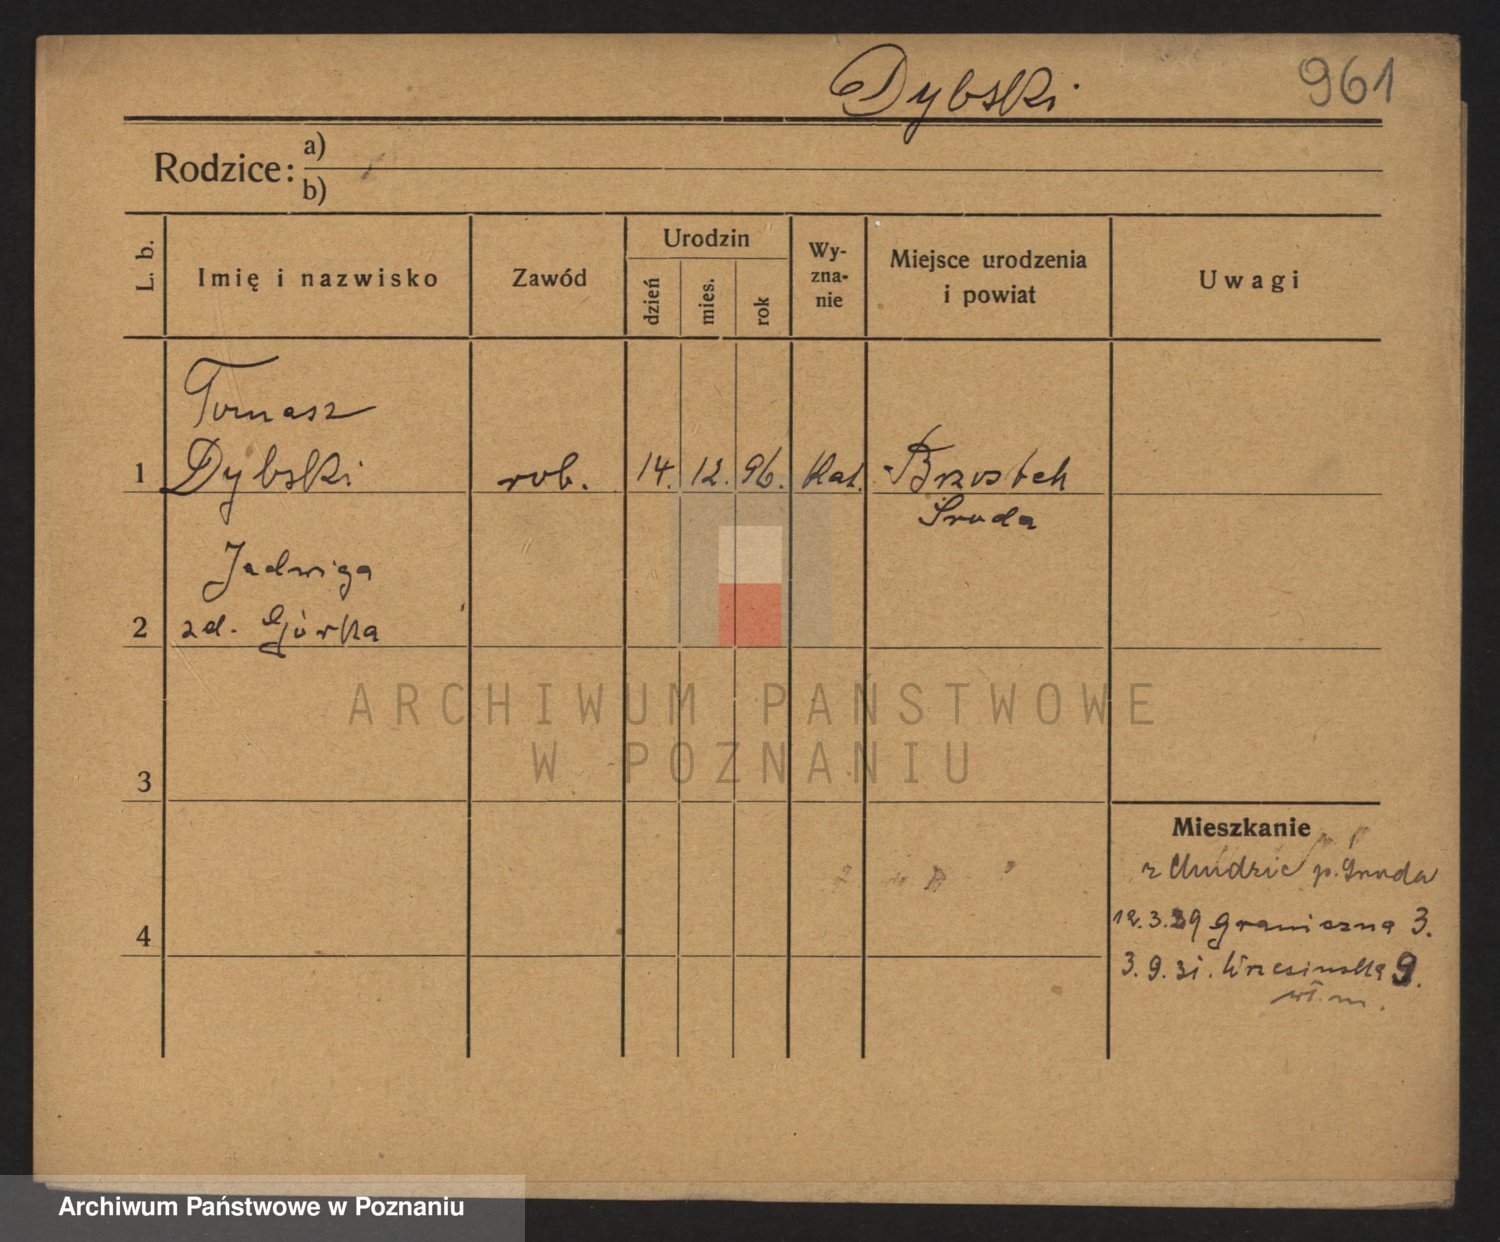 Dybski
961
Rodzice:
a)
b)
L. b.
Imię i nazwisko
Zawód
Urodzin
dzień
mies.
rok
Wy-
zna-
nie
Miejsce urodzenia
i powiat
Uwagi
Tomasz
1 Dybski rob. 14. 12. 96. Kat. Brzostek
Środa
Jadwiga
2 zd. Górka
3
4
Mieszkanie
z p. Środa
12.3.29 Graniczna 3.
3.9.31. Wrzesińska 9.
ARCHIWUM PAŃSTWOWE
W POZNANIU
Archiwum Państwowe w Poznaniu